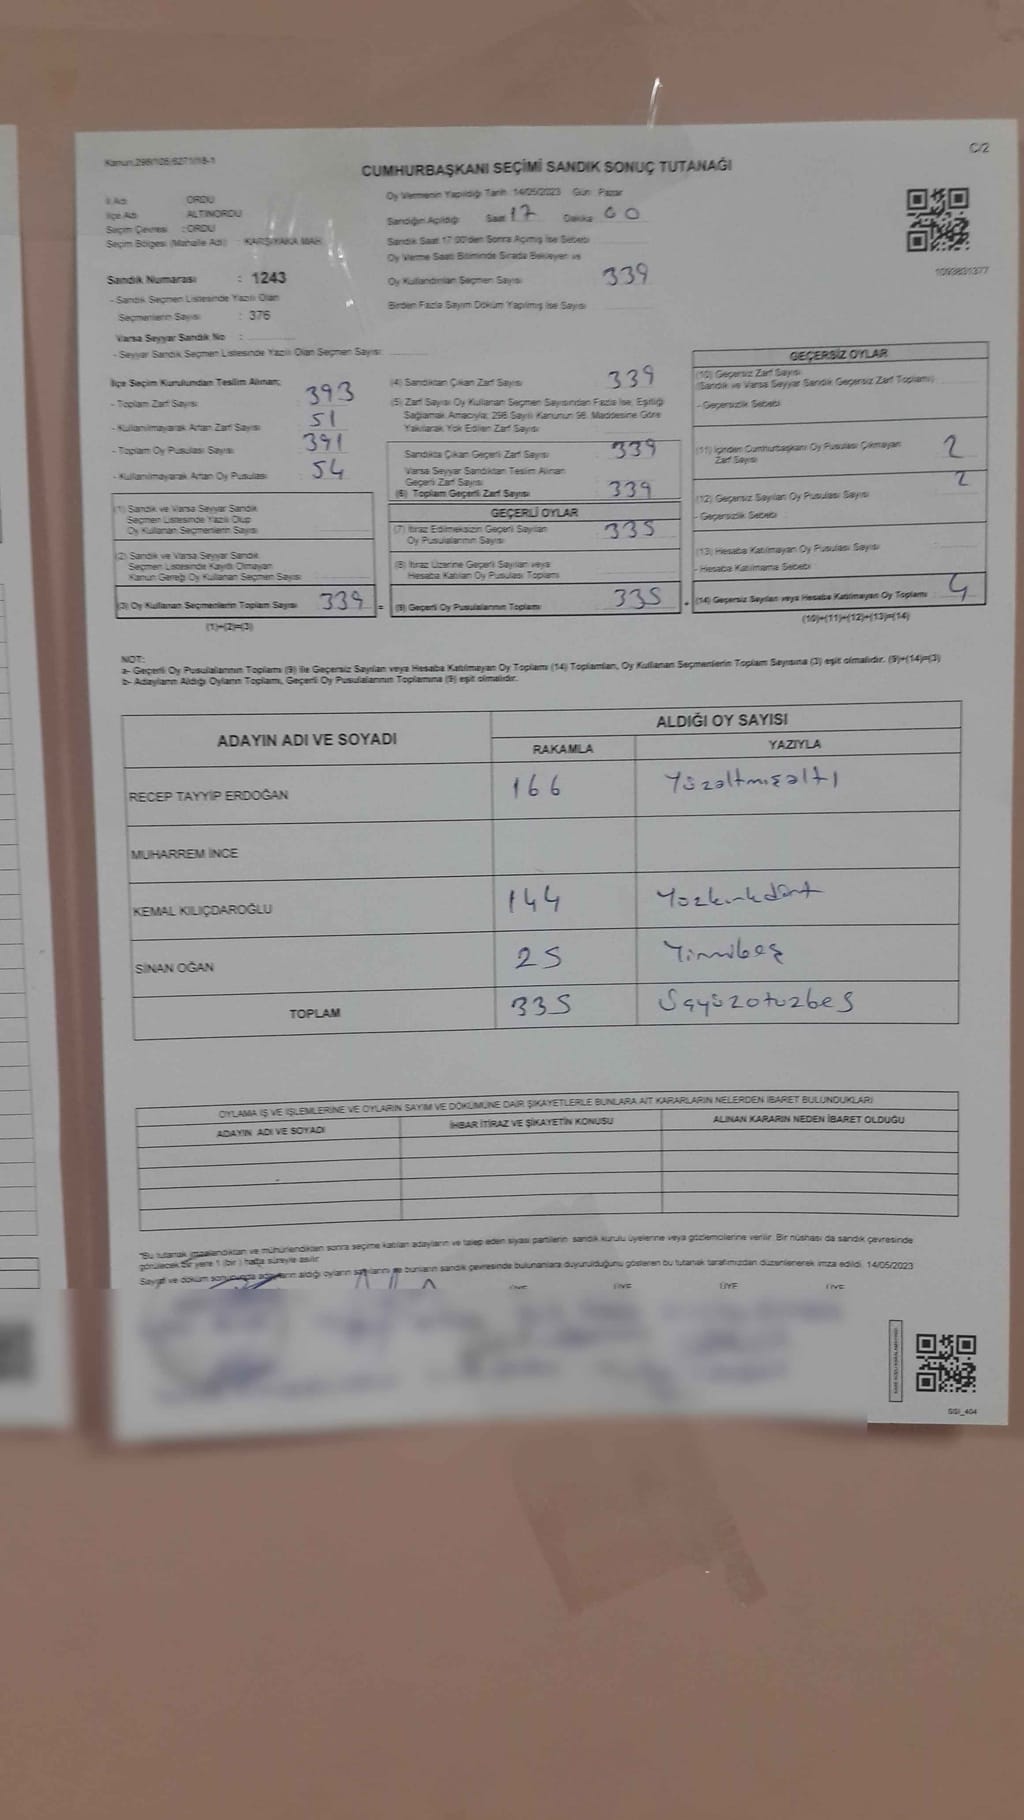 Kanun:298/106;6271/18-1
C/2
CUMHURBAŞKANI SEÇİMİ SANDIK SONUÇ TUTANAĞI
İl Adı : ORDU
İlçe Adı : ALTINORDU
Seçim Çevresi : ORDU
Seçim Bölgesi (Mahalle Adı) : KARŞIYAKA MAH.
Sandık Numarası : 1243
- Sandık Seçmen Listesinde Yazılı Olan
Seçmenlerin Sayısı : 376
Varsa Seyyar Sandık No :
- Seyyar Sandık Seçmen Listesinde Yazılı Olan Seçmen Sayısı:
Oy Vermenin Yapıldığı Tarih 14/05/2023 Gün Pazar
Sandığın Açıldığı Saat 17 Dakika 00
Sandık Saat 17:00'den Sonra Açılmış İse Sebebi
Oy Verme Saati Bitiminde Sırada Bekleyen ve
Oy Kullandırılan Seçmen Sayısı 339
Birden Fazla Sayım Döküm Yapılmış İse Sayısı
1093831377
İlçe Seçim Kurulundan Teslim Alınan;
- Toplam Zarf Sayısı 393
- Kullanılmayarak Artan Zarf Sayısı 51
- Toplam Oy Pusulası Sayısı 391
- Kullanılmayarak Artan Oy Pusulası 54
(1) Sandık ve Varsa Seyyar Sandık
Seçmen Listesinde Yazılı Olup
Oy Kullanan Seçmenlerin Sayısı
(2) Sandık ve Varsa Seyyar Sandık
Seçmen Listesinde Kayıtlı Olmayan
Kanun Gereği Oy Kullanan Seçmen Sayısı
(3) Oy Kullanan Seçmenlerin Toplam Sayısı 339 =
(1)+(2)=(3)
(4) Sandıktan Çıkan Zarf Sayısı 339
(5) Zarf Sayısı Oy Kullanan Seçmen Sayısından Fazla İse, Eşitliği
Sağlamak Amacıyla; 298 Sayılı Kanunun 98. Maddesine Göre
Yakılarak Yok Edilen Zarf Sayısı
Sandıkta Çıkan Geçerli Zarf Sayısı 339
Varsa Seyyar Sandıktan Teslim Alınan
Geçerli Zarf Sayısı
(6) Toplam Geçerli Zarf Sayısı 339
GEÇERLİ OYLAR
(7) İtiraz Edilmeksizin Geçerli Sayılan
Oy Pusulalarının Sayısı 335
(8) İtiraz Üzerine Geçerli Sayılan veya
Hesaba Katılan Oy Pusulası Toplamı
(9) Geçerli Oy Pusulalarının Toplamı 335 +
GEÇERSİZ OYLAR
(10) Geçersiz Zarf Sayısı
(Sandık ve Varsa Seyyar Sandık Geçersiz Zarf Toplamı)
- Geçersizlik Sebebi
(11) İçinden Cumhurbaşkanı Oy Pusulası Çıkmayan
Zarf Sayısı 2
(12) Geçersiz Sayılan Oy Pusulası Sayısı 2
- Geçersizlik Sebebi
(13) Hesaba Katılmayan Oy Pusulası Sayısı
- Hesaba Katılmama Sebebi
(14) Geçersiz Sayılan veya Hesaba Katılmayan Oy Toplamı 4
(10)+(11)+(12)+(13)=(14)
NOT:
a- Geçerli Oy Pusulalarının Toplamı (9) ile Geçersiz Sayılan veya Hesaba Katılmayan Oy Toplamı (14) Toplamları, Oy Kullanan Seçmenlerin Toplam Sayısına (3) eşit olmalıdır. (9)+(14)=(3)
b- Adayların Aldığı Oyların Toplamı, Geçerli Oy Pusulalarının Toplamına (9) eşit olmalıdır.
ADAYIN ADI VE SOYADI
ALDIĞI OY SAYISI
RAKAMLA YAZIYLA
RECEP TAYYİP ERDOĞAN 166 Yüzaltmışaltı
MUHARREM İNCE
KEMAL KILIÇDAROĞLU 144 Yüzkırkdört
SİNAN OĞAN 25 Yirmibeş
TOPLAM 335 Üçyüzotuzbeş
OYLAMA İŞ VE İŞLEMLERİNE VE OYLARIN SAYIM VE DÖKÜMÜNE DAİR ŞİKAYETLERLE BUNLARA AİT KARARLARIN NELERDEN İBARET BULUNDUKLARI
ADAYIN ADI VE SOYADI İHBAR İTİRAZ VE ŞİKAYETİN KONUSU ALINAN KARARIN NEDEN İBARET OLDUĞU
*Bu tutanak imzalandıktan ve mühürlendikten sonra seçime katılan adayların ve talep eden siyasi partilerin sandık kurulu üyelerine veya gözlemcilerine verilir. Bir nüshası da sandık çevresinde
görülecek bir yere 1 (bir) hafta süreyle asılır.
Sayım ve döküm sonucunda adayların aldığı oyların sayılarını ve bunların sandık çevresinde bulunanlara duyurulduğunu gösteren bu tutanak tarafımızdan düzenlenerek imza edildi. 14/05/2023
ÜYE ÜYE ÜYE ÜYE
GSI_404